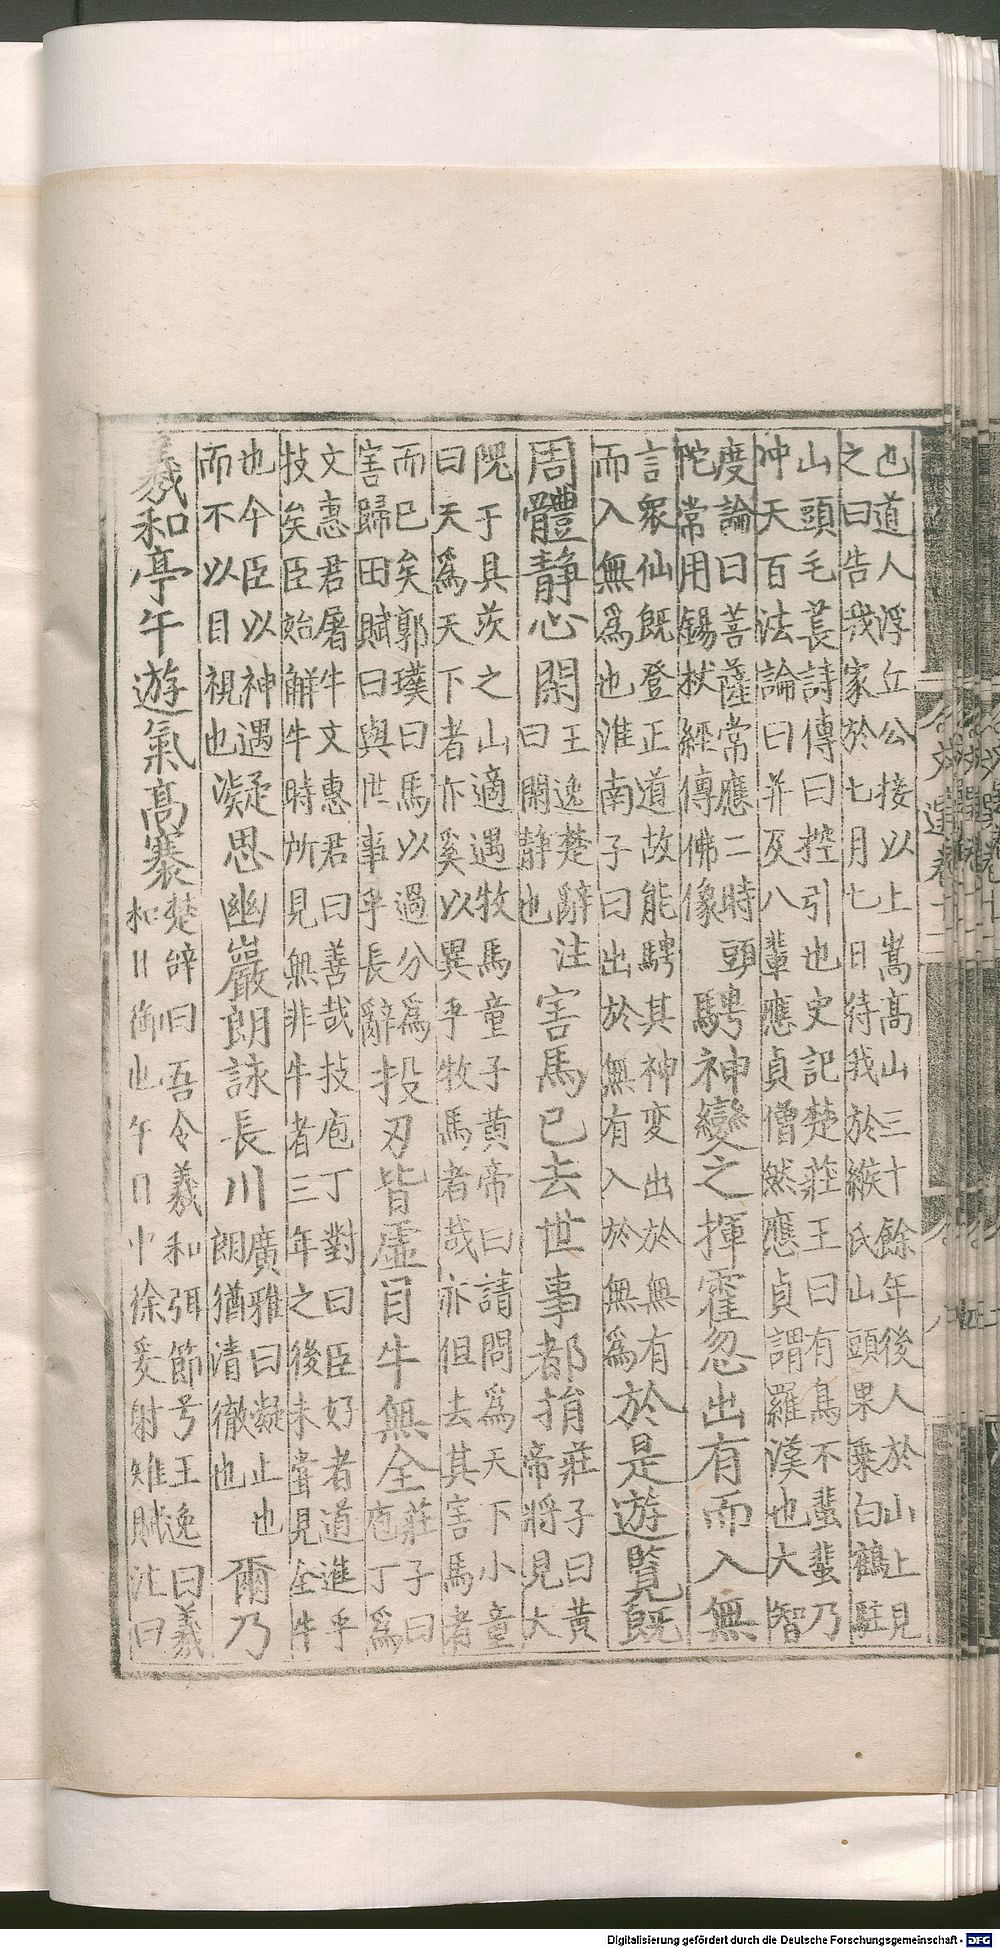 也道人浮丘公接以上嵩高山三十餘年後人於山上見
之曰告我家於七月七日待我於緱氏山頭果乗白鶴駐
山頭毛萇詩傳曰控引也史記楚莊王曰有鳥不蜚蜚乃
冲天百法論曰并及八輩應貞僧然應貞謂羅漢也大智
度論曰菩薩常應二時頭
陀常用錫杖經傳佛像
騁神變之揮霍忽出有而入無
言衆仙既登正道故能騁其神変出於無有
而入無為也淮南子曰出於無有入於無為
於是遊覧既
周體静心閑
王逸楚辭注
曰閑静也
害馬已去世事都捐
莊子曰黄
帝將見大
隗于具茨之山適遇牧馬童子黄帝曰請問為天下小童
曰天為天下者亦奚以異乎牧馬者哉亦但去其害馬者
而已矣郭璞曰馬以過分為
害歸田賦曰與世事乎長辭
投刃皆虚目牛無全
莊子曰
庖丁為
文惠君屠牛文惠君曰善哉技庖丁對曰臣好者道進乎
技矣臣始解牛時所見無非牛者三年之後未甞見全牛
也今臣以神遇
而不以目視也
凝思幽巖朗詠長川
廣雅曰凝止也
朗猶清徹也
爾乃
羲和亭午遊氣高褰
楚辭曰吾令羲和弭節号王逸曰羲
和日御也午日中徐爰射雉賦注曰
Digitalisierung gefördert durch die Deutsche Forschungsgemeinschaft - DFG